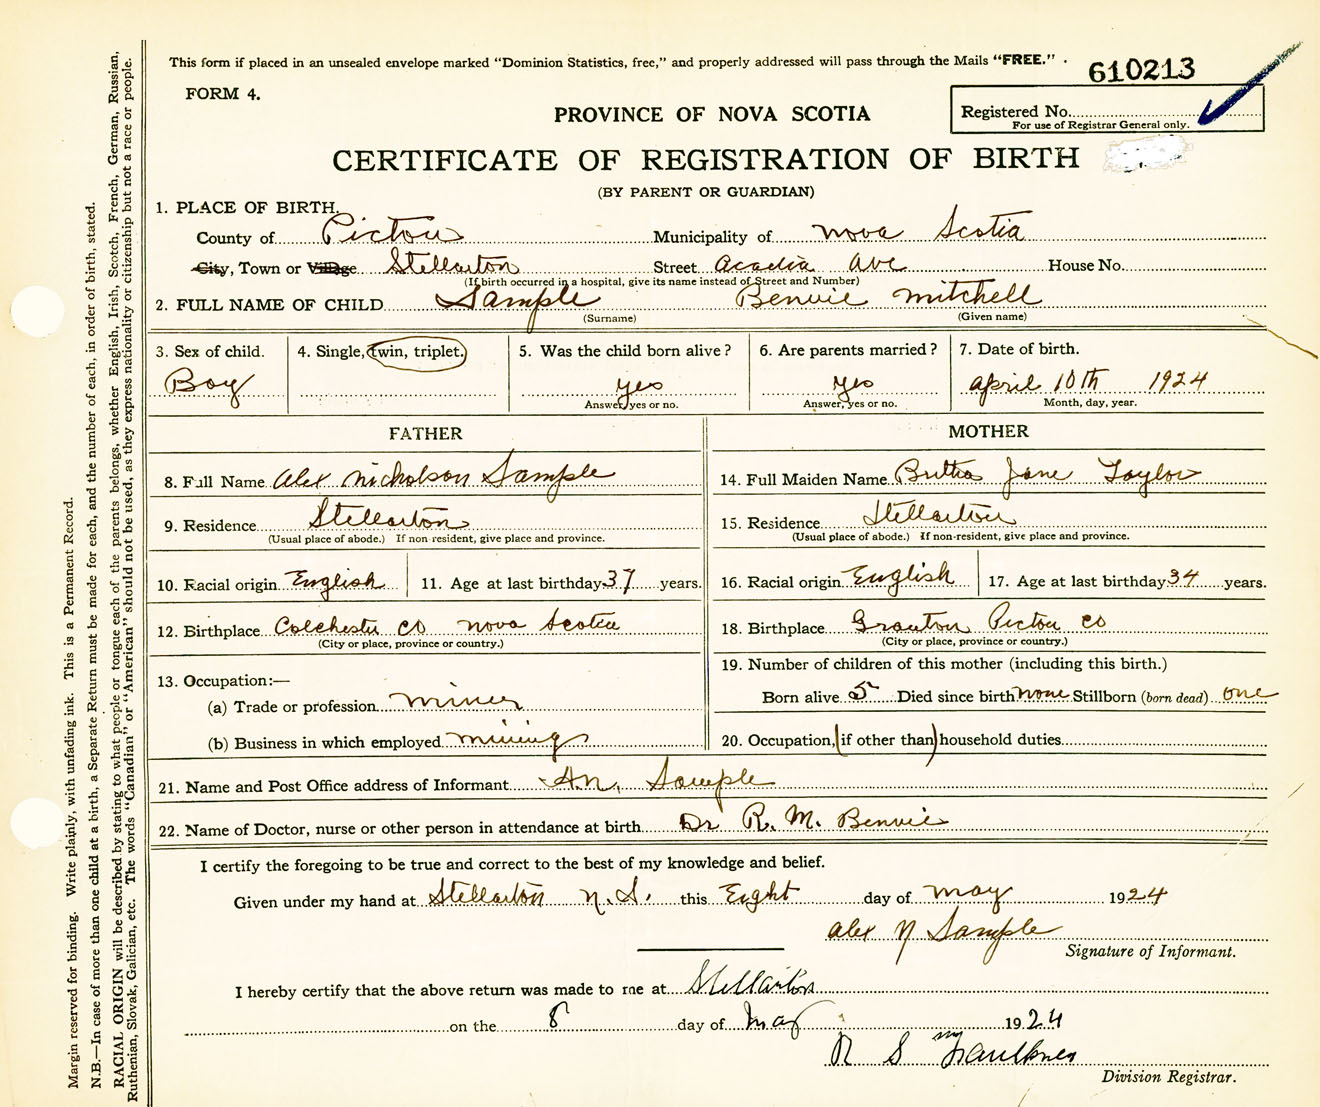 This form if placed in an unsealed envelope marked "Dominion Statistics, free," and properly addressed will pass through the Mails "FREE."
610213
FORM 4.
PROVINCE OF NOVA SCOTIA
Registered No.
For use of Registrar General only.
CERTIFICATE OF REGISTRATION OF BIRTH
(BY PARENT OR GUARDIAN)
1. PLACE OF BIRTH.
County of Pictou Municipality of Nova Scotia
City, Town or Village Stellarton Street Acadia Ave House No.
(If birth occurred in a hospital, give its name instead of Street and Number)
2. FULL NAME OF CHILD Sample Benvie Mitchell
(Surname) (Given name)
3. Sex of child. 4. Single, twin, triplet. 5. Was the child born alive? 6. Are parents married? 7. Date of birth.
Boy yes yes April 10th 1924
Answer, yes or no. Answer, yes or no. Month, day, year.
FATHER MOTHER
8. Full Name Alex Nicholson Sample 14. Full Maiden Name Jane Taylor
9. Residence Stellarton 15. Residence Stellarton
(Usual place of abode.) If non-resident, give place and province. (Usual place of abode.) If non-resident, give place and province.
10. Racial origin English 11. Age at last birthday 37 years. 16. Racial origin English 17. Age at last birthday 34 years.
12. Birthplace Colchester Co Nova Scotia 18. Birthplace Granton Pictou Co
(City or place, province or country.) (City or place, province or country.)
13. Occupation:— 19. Number of children of this mother (including this birth.)
(a) Trade or profession miner Born alive 5 Died since birth none Stillborn (born dead) one
(b) Business in which employed mining 20. Occupation, (if other than) household duties
21. Name and Post Office address of Informant A.N. Sample
22. Name of Doctor, nurse or other person in attendance at birth Dr R. M. Benvie
I certify the foregoing to be true and correct to the best of my knowledge and belief.
Given under my hand at Stellarton N.S. this Eight day of May 1924
Alex N Sample
Signature of Informant.
I hereby certify that the above return was made to me at Stellarton
on the 8 day of May 1924
Faulkner
Division Registrar.
Margin reserved for binding. Write plainly, with unfading ink. This is a Permanent Record.
N.B.—In case of more than one child at a birth, a Separate Return must be made for each, and the number of each, in order of birth, stated.
RACIAL ORIGIN will be described by stating to what people or tongue each of the parents belongs, whether English, Irish, Scotch, French, German, Russian,
Ruthenian, Slovak, Galician, etc. The words "Canadian" or "American" should not be used, as they express nationality or citizenship but not a race or people.